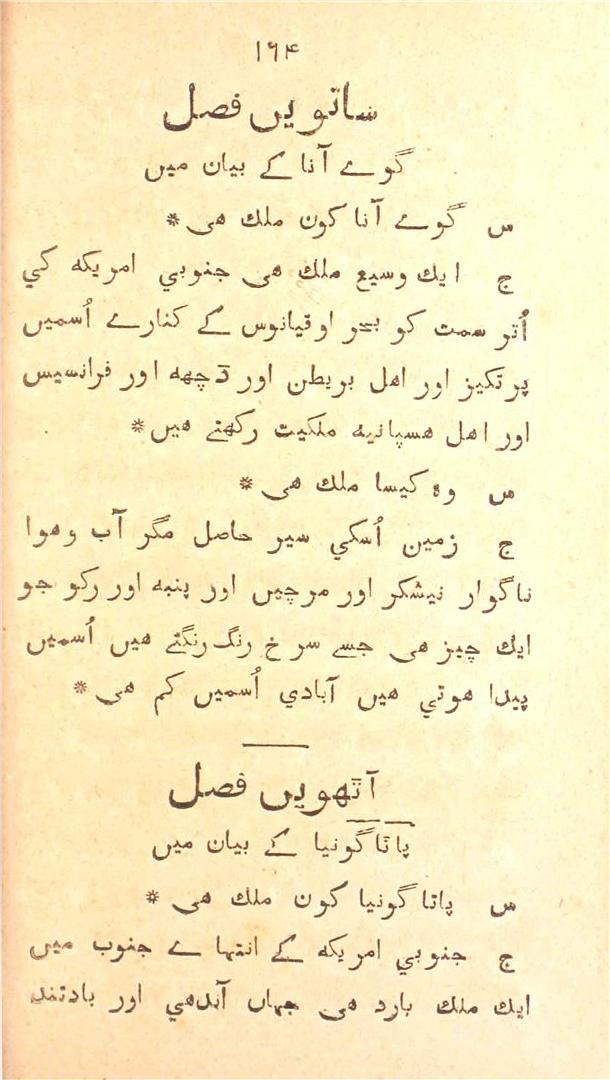 ۱۶۴
ساتویں فصل
گوے آنا کے بیان میں
س گوے آنا کون ملك هی *
ج ایك وسیع ملك هی جنوبي امریکه کي
اُتر سمت کو بحر اوقیانوس کے کنارے اُسمیں
پرتکیز اور اهل بریطن اور ڈچهه اور فرانسیس
اور اهل هسپانیه ملکیت رکھتے هیں *
س وہ کیسا ملك هی *
ج زمین اُسکي سیر حاصل مگر آب وهوا
ناگوار نیشکر اور مرچیں اور پنبه اور رکو جو
ایك چیز هی جسے سرخ رنگ رنگتے هیں اُسمیں
پیدا هوتي هیں آبادي اُسمیں کم هی *
آتهویں فصل
پاتاگونیا کے بیان میں
س پاتاگونیا کون ملك هی *
ج جنوبي امریکه کے انتہاے جنوب میں
ایك ملك بارد هی جہاں آندهي اور بادتند